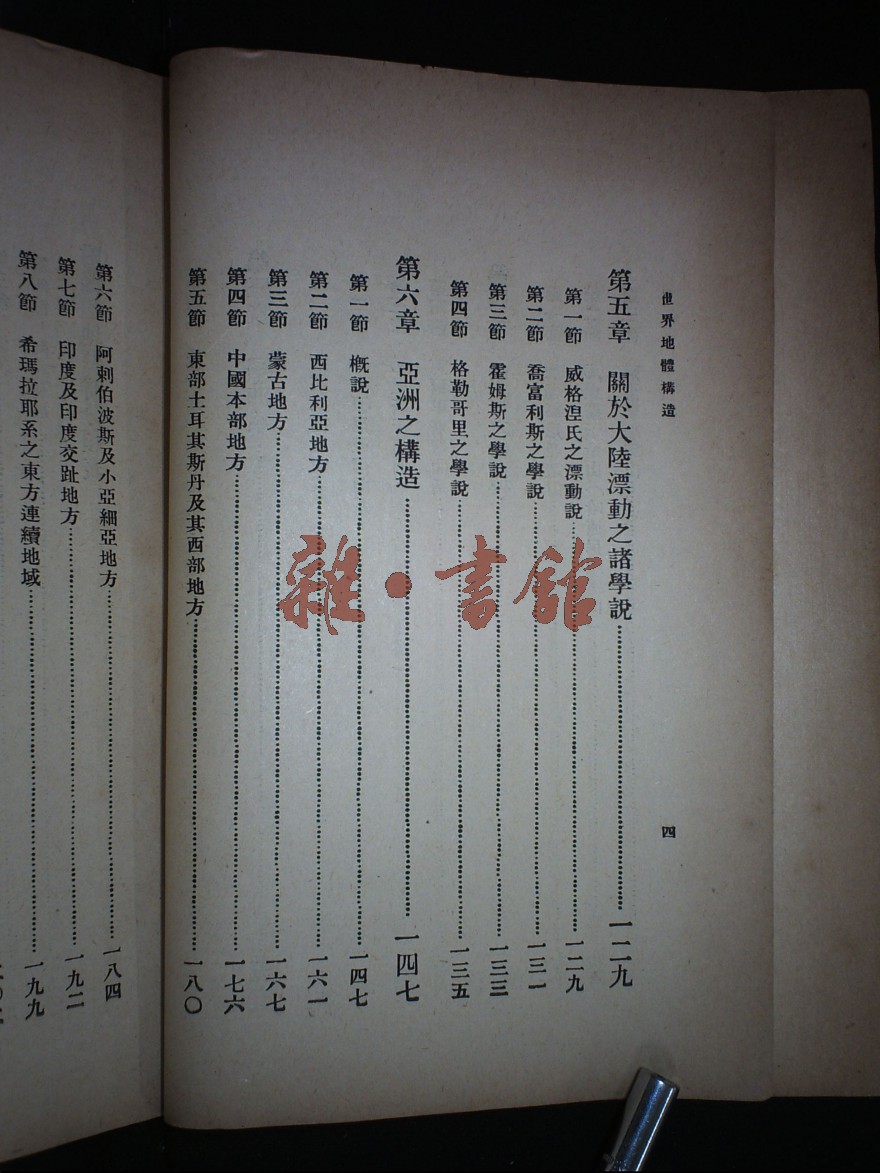 世界地體構造
四
第五章 關於大陸漂動之諸學說……一二九
第一節 威格涅氏之漂動說……一二九
第二節 喬富利斯之學說……一三一
第三節 霍姆斯之學說……一三三
第四節 格勒哥里之學說……一三五
第六章 亞洲之構造……一四七
第一節 概說……一四七
第二節 西比利亞地方……一六一
第三節 蒙古地方……一六七
第四節 中國本部地方……一七六
第五節 東部土耳其斯丹及其西部地方……一八〇
第六節 阿剌伯波斯及小亞細亞地方……一八四
第七節 印度及印度交趾地方……一九二
第八節 希瑪拉耶系之東方連續地域……一九九
雜·書館